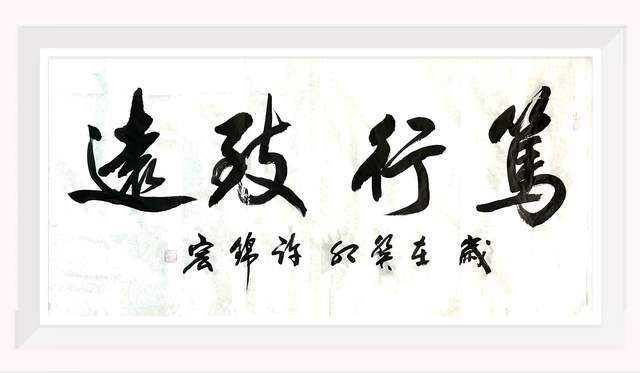 篤行致遠
歲在癸卯許錦宏